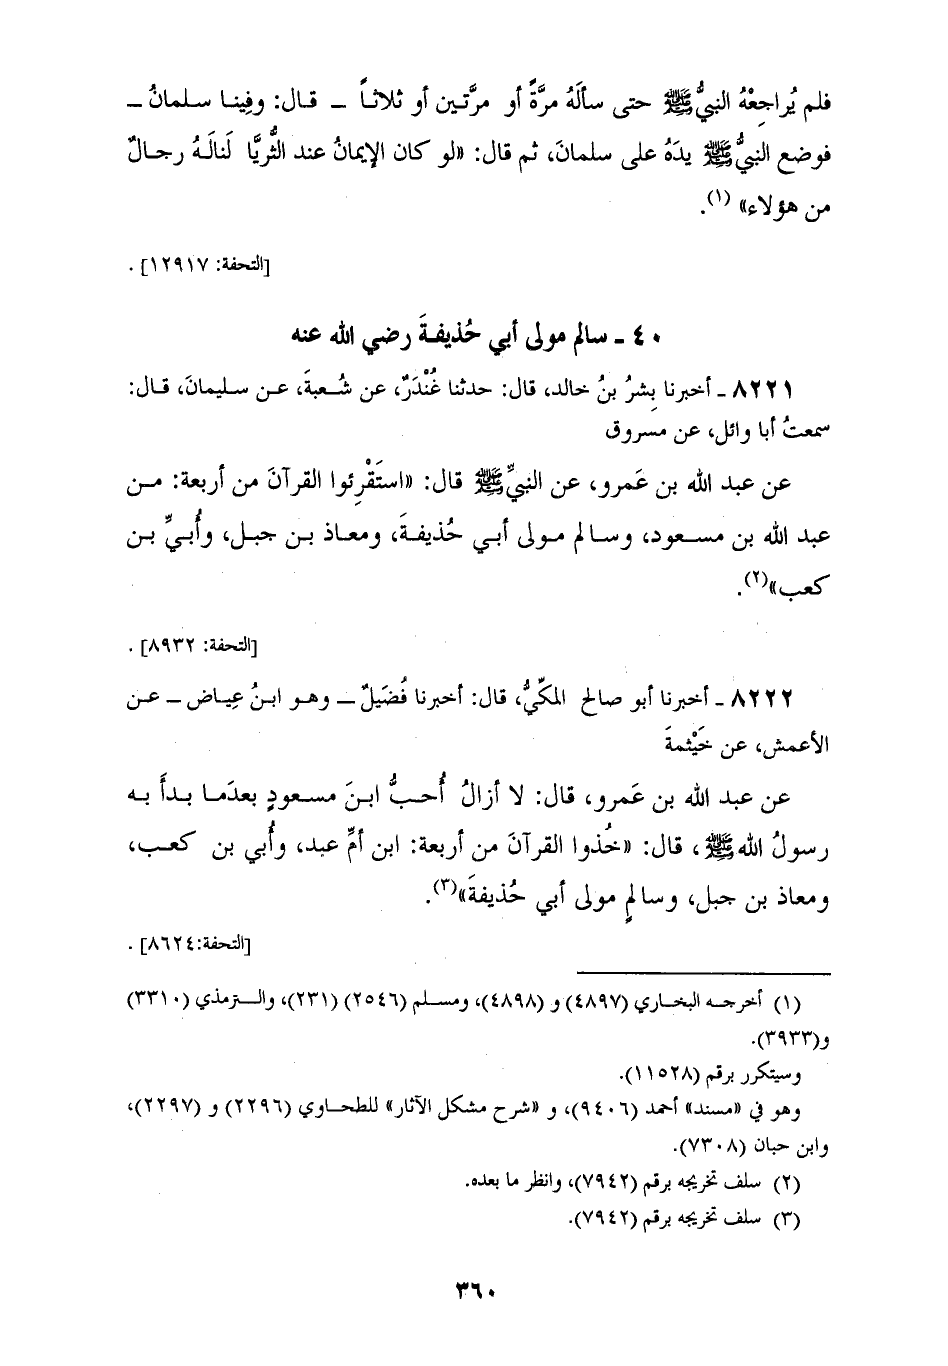 فلم يُراجِعْهُ النبيُّ ﷺ حتى سألَهُ مرَّةً أو مرَّتين أو ثلاثاً ــ قال: وفِينا سلمانُ ــ
فوضع النبيُّ ﷺ يدَهُ على سلمانَ، ثم قال: «لو كان الإيمانُ عند الثُّريَّا لَنالَهُ رجالٌ
من هؤلاء» (١).
[التحفة: ١٢٩١٧] .
٤٠ ـ سالم مولى أبي حُذيفةَ رضي الله عنه
٨٢٢١ ـ أخبرنا بِشرُ بنُ خالد، قال: حدثنا غُنْدَرٌ، عن شُعبةَ، عن سليمانَ، قال:
سمعتُ أبا وائل، عن مسروق
عن عبد الله بن عَمرو، عن النبيِّ ﷺ قال: «استَقْرِئوا القرآنَ من أربعة: من
عبد الله بن مسعود، وسالم مولى أبي حُذيفةَ، ومعاذ بن جبل، وأُبيِّ بن
كعب»(٢).
[التحفة: ٨٩٣٢] .
٨٢٢٢ ـ أخبرنا أبو صالح المكّيُّ، قال: أخبرنا فُضَيلٌ ــ وهو ابنُ عِياض ــ عن
الأعمش، عن خَيْثمةَ
عن عبد الله بن عَمرو، قال: لا أزالُ أُحبُّ ابنَ مسعودٍ بعدَما بدأَ به
رسولُ الله ﷺ، قال: «خُذوا القرآنَ من أربعة: ابن أمِّ عبد، وأُبي بن كعب،
ومعاذ بن جبل، وسالمٍ مولى أبي حُذيفةَ»(٣).
[التحفة:٨٦٢٤] .
(١) أخرجه البخاري (٤٨٩٧) و (٤٨٩٨)، ومسلم (٢٥٤٦) (٢٣١)، والترمذي (٣٣١٠)
و(٣٩٣٣).
وسيتكرر برقم (١١٥٢٨).
وهو في «مسند» أحمد (٩٤٠٦)، و «شرح مشكل الآثار» للطحاوي (٢٢٩٦) و (٢٢٩٧)،
وابن حبان (٧٣٠٨).
(٢) سلف تخريجه برقم (٧٩٤٢)، وانظر ما بعده.
(٣) سلف تخريجه برقم (٧٩٤٢).
٣٦٠